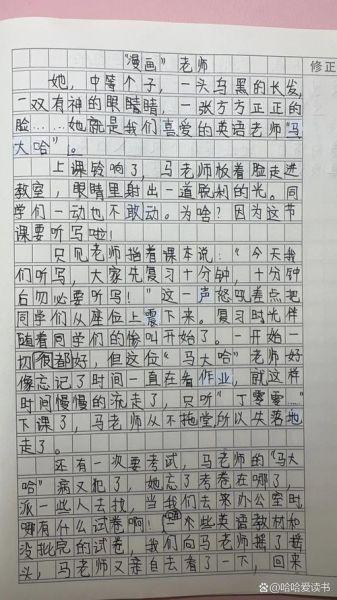 修正
“漫画”老师
她,中等个子,一头乌黑的长发,
一双有神的眼睛,一张方方正正的
脸……她就是我们喜爱的英语老师“马
大哈”。
上课铃响了,马老师板着脸走进
教室,眼睛里射出一道锐利的光。同
学们一动也不敢动。为啥?因为这节
课要听写啦!
只见老师指着课本说:“今天我
们听写,大家先复习十分钟,十分钟
后务必要听写!”这一声怒吼差点把
同学们从座位上震下来。复习时光伴
随着同学们的惨叫开始了。一开始一
切都好,但这位“马大哈”老师好
像忘记了时间一直在看作业,就这样
时间慢慢的流走了,只听“丁零零…”
下课了,马老师从不拖堂,所以失落地
走了。
还有一次要考试,马老师的“马大
哈”病又犯了,她忘了考卷在哪了,
派一些人去找,当我们去来办公室时,
哪有什么试卷啊!一些英语教材和
没批完的试卷,我们向马老师摇了摇
头,马老师又亲自去看了一下,回来
@哈哈爱读书